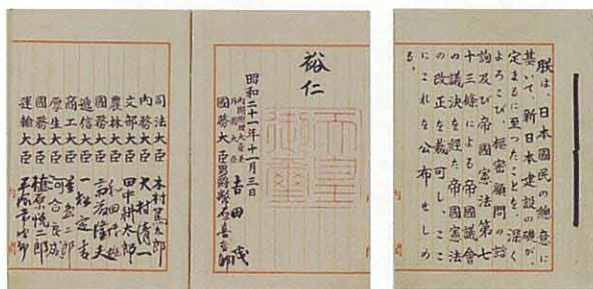 朕は、日本國民の總意に
基いて、新日本建設の礎が、
定まるに至つたことを、深く
よろこび、樞密顧問の諮
詢及び帝國憲法第七
十三條による帝國議會
の議決を経た帝國憲法
の改正を裁可し、ここ
にこれを公布せしめ
る。
裕仁
天皇
御璽
昭和二十一年十一月三日
内閣總理大臣兼
外務大臣 吉田茂
國務大臣 男爵 幣原喜重郎
司法大臣 木村篤太郎
内務大臣 大村清一
文部大臣 田中耕太郎
農林大臣 和田博雄
國務大臣 斎藤隆夫
逓信大臣 一松定吉
商工大臣 星島二郎
厚生大臣 河合良成
國務大臣 植原悦二郎
運輸大臣 平塚常次郎